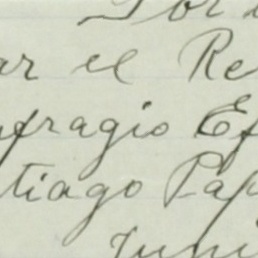 Por
ar el Re
ufragio Ef
tiago Pap
Juni